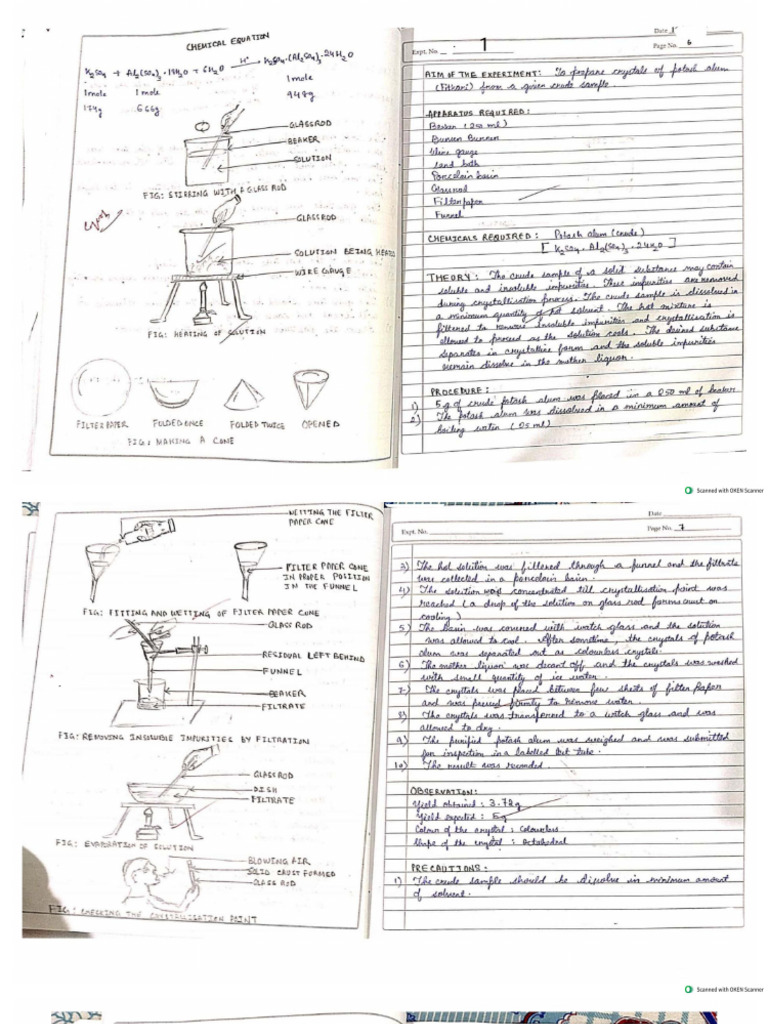 CHEMICAL EQUATION
K₂SO₄ + Al₂(SO₄)₃·18H₂O + 6H₂O H⁺→ K₂SO₄·(Al₂SO₄)₃·24H₂O
1mole 1mole 1mole
174g 666g 948g
GLASSROD
BEAKER
SOLUTION
FIG: STIRRING WITH A GLASS ROD
GLASSROD
SOLUTION BEING HEATED
WIRE GAUGE
FIG: HEATING OF SOLUTION
FILTER PAPER FOLDED ONCE FOLDED TWICE OPENED
FIG: MAKING A CONE
Date
Expt. No. 1 Page No. 6
AIM OF THE EXPERIMENT: To prepare crystals of potash alum
(Fitkari) from a given crude sample.
APPARATUS REQUIRED:
Beaker (250 ml)
Bunsen Burner
Wire gauge
sand bath
Porcelain basin
Glassrod
Filter paper
Funnel
CHEMICALS REQUIRED: Potash alum (crude)
[K₂SO₄·Al₂(SO₄)₃·24H₂O]
THEORY: The crude sample of a solid substance may contain
soluble and insoluble impurities. These impurities are removed
during crystallisation process. The crude sample is dissolved in
a minimum quantity of hot solvent. The hot mixture is
filtered to remove insoluble impurities and crystallisation is
allowed to proceed as the solution cools. The desired substance
separates in crystalline form and the soluble impurities
remain dissolve in the mother liquor.
PROCEDURE:
1) 5g of crude potash alum was placed in a 250 ml of beaker
2) The potash alum was dissolved in a minimum amount of
boiling water (25 ml)
Scanned with OKEN Scanner
WETTING THE FILTER
PAPER CONE
FILTER PAPER CONE
IN PROPER POSITION
IN THE FUNNEL
FIG: FITTING AND WETTING OF FILTER PAPER CONE
GLASS ROD
RESIDUAL LEFT BEHIND
FUNNEL
BEAKER
FILTRATE
FIG: REMOVING INSOLUBLE IMPURITIES BY FILTRATION
GLASSROD
DISH
FILTRATE
FIG: EVAPORATION OF SOLUTION
BLOWING AIR
SOLID CRUST FORMED
GLASS ROD
FIG: CHECKING THE CRYSTALLISATION POINT
Date
Expt. No. Page No. 7
3) The hot solution was filtered through a funnel and the filtrate
was collected in a porcelain basin.
4) The solution was concentrated till crystallisation point was
reached (a drop of the solution on glass rod forms crust on
cooling)
5) The basin was covered with watch glass and the solution
was allowed to cool. After sometime, the crystals of potash
alum was separated out as colourless crystals.
6) The mother liquor was decant off and the crystals was washed
with small quantity of ice water.
7) The crystals was placed between few sheets of filter paper
and was pressed firmly to remove water.
8) The crystals was transferred to a watch glass and was
allowed to dry.
9) The purified potash alum was weighed and was submitted
for inspection in a labelled test tube.
10) The result was recorded.
OBSERVATION:
Yield obtained: 3.72g
Yield expected: 5g
Colour of the crystal: Colourless
Shape of the crystal: Octahedral
PRECAUTIONS:
1) The crude sample should be dissolve in minimum amount
of solvent.
Scanned with OKEN Scanner